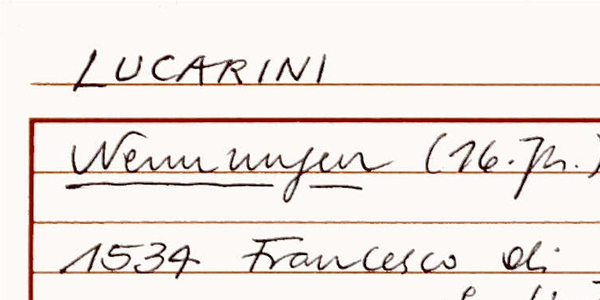 LUCARINI
Nennungen (16. Jh.)
1534 Francesco di